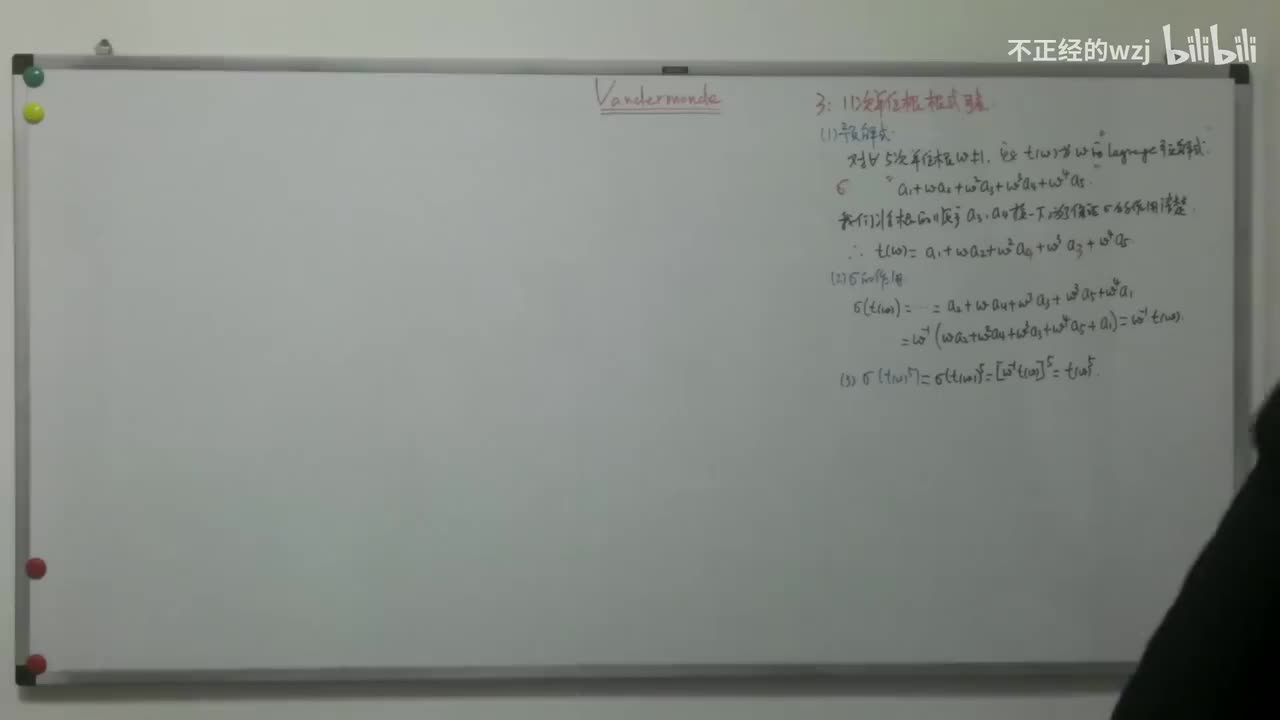 不正经的wzj bilibili
Vandermonde
3: 11次单位根根式可表
(1) 预解式:
对∀5次单位根ω≠1, 定义 t(ω)为ω的Lagrange预解式.
σ "a₁+ωa₂+ω²a₃+ω³a₄+ω⁴a₅."
我们将根的顺序a₃,a₄换一下,为了保证σ的作用清楚.
∴ t(ω)= a₁+ωa₂+ω²a₄+ω³a₃+ω⁴a₅
(2) σ的作用
σ(t(ω))=⋯= a₂+ωa₄+ω²a₃+ω³a₅+ω⁴a₁
=ω⁻¹(ωa₂+ω²a₄+ω³a₃+ω⁴a₅+a₁)=ω⁻¹t(ω).
(3) σ(t(ω)⁵)=σ(t(ω))⁵=[ω⁻¹t(ω)]⁵=t(ω)⁵.